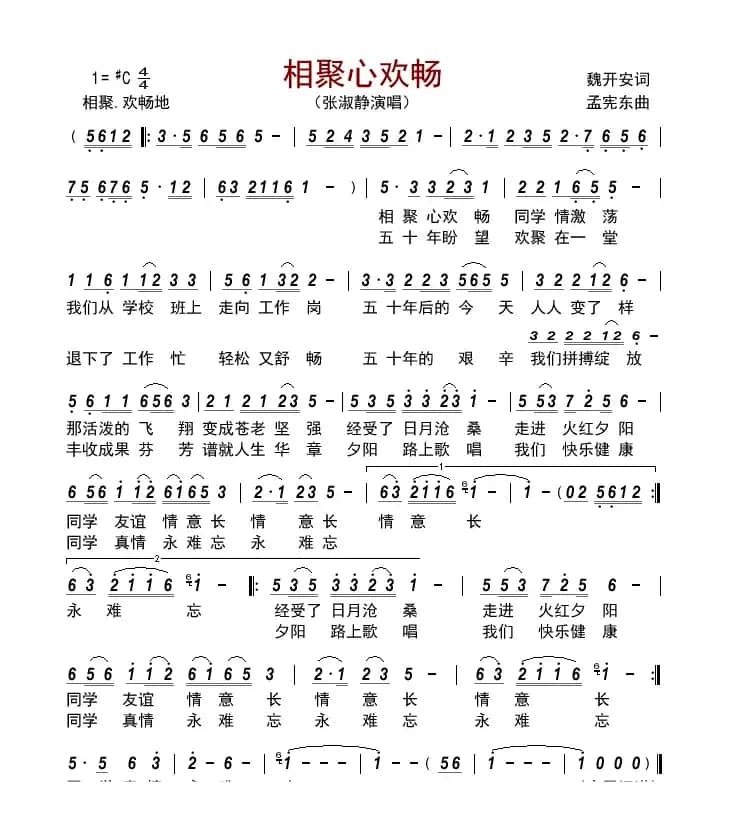 相聚心欢畅
1=♯C 4/4
魏开安词
相聚.欢畅地
(张淑静演唱)
孟宪东曲
( 5 6 1 2 |: 3 · 5 6 5 6 5 5 - | 3 2 1 2 3 5 2 - | 2 · 1 2 3 5 2 · 7 6 5 6 |
7 5 6 7 6 5 · 1 2 | 6 3 2 1 1 6 1 - ) | 5 · 3 3 2 3 1 | 2 2 1 6 5 5 - |
相 聚 心欢 畅 同学 情激 荡
五 十 年盼 望 欢聚 在一 堂
1 1 6 1 1 2 3 3 | 5 6 1 3 2 2 - | 3 · 3 2 2 3 5 6 5 5 | 3 2 2 1 2 6 - |
我们从 学校 班上 走向 工作 岗 五 十年后的 今 天 人人 变了 样
3 2 2 2 1 2 6 -
退下了 工作 忙 轻松 又舒 畅 五 十年的 艰 辛 我们拼搏绽 放
5 6 1 1 6 5 6 3 | 2 1 2 1 2 3 5 | 5 3 5 3 3 2 3 1 | 5 5 3 7 2 5 6 - |
那活泼的 飞 翔 变成苍老 坚 强 经受了 日月沧 桑 走进 火红夕 阳
丰收成果 芬 芳 谱就人生 华 章 夕阳 路上歌 唱 我们 快乐健 康
1
6 5 6 1 1 2 6 1 6 5 3 | 2 · 1 2 3 5 - | 6 3 2 1 1 6 6 1 - | 1 - ( 0 2 5 6 1 2 :|
同学 友谊 情 意 长 情 意 长 情 意 长
同学 真情 永 难 忘 永 难 忘
2
6 3 2 1 1 6 6 1 - |: 5 3 5 3 3 2 3 1 | 5 5 3 7 2 5 6 - |
永 难 忘 经受了 日月沧 桑 走进 火红夕 阳
夕阳 路上歌 唱 我们 快乐健 康
6 5 6 1 1 2 6 1 6 5 3 | 2 · 1 2 3 5 - | 6 3 2 1 1 6 6 1 - :|
同学 友谊 情 意 长 情 意 长 情 意 长
同学 真情 永 难 忘 永 难 忘 永 难 忘
5 · 5 6 3 | 2 - 6 - | 6 1 - - - | 1 - - ( 5 6 | 1 - - - | 1 0 0 0 ) |